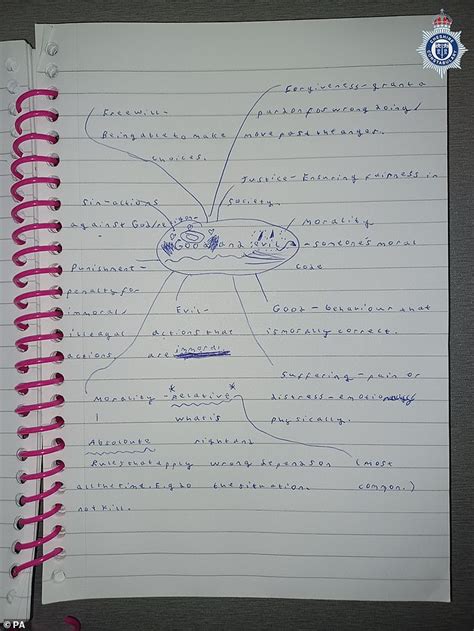 CHESHIRE CONSTABULARY
Forgiveness - grant a
pardon for wrong doing/
move past the anger.
Freewill -
Being able to make
choices.
Justice - Ensuring fairness in
society.
Sin - actions
against God/religion.
Morality
- someone's moral
code
Good and evil
Punishment -
penalty for
immoral/
illeagal
actions
Evil -
actions that
are immoral
Good - behaviour that
is morally correct.
Suffering - pain or
distress - emotionally
physically.
Morality - Relative
what's
right and
wrong depends on
the situation.
(most
common.)
Absolute
Rules that apply
all the time. E.g do
not kill.
© PA